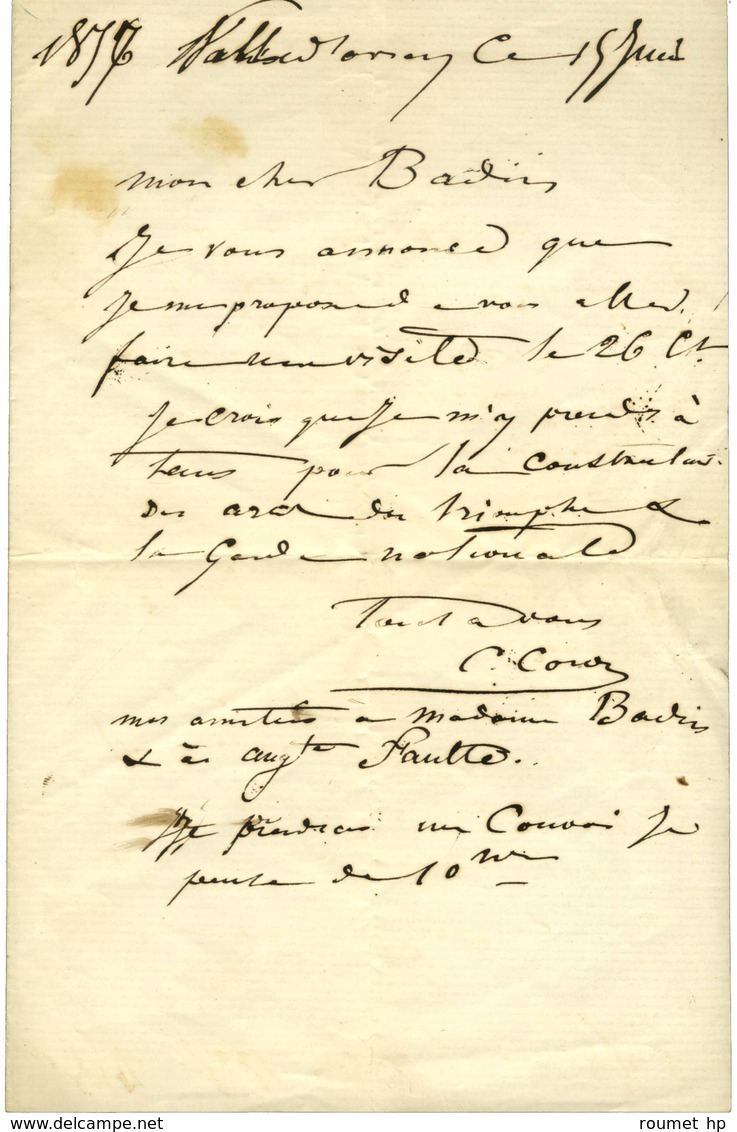 Ville d'avray Ce 15 Juin
mon cher Badin
Je vous annonce que
Je me propose de vous aller
faire une visite le 26 Ct.
Je crois que Je m'y prends à
tems pour la construction
des arcs de triomphe &
la Garde nationale
tout a vous
C. Corot
mes amitiés a madame Badin
& à Faulte.
Je prendrai un Convoi Je
pense de 10
roumet hp